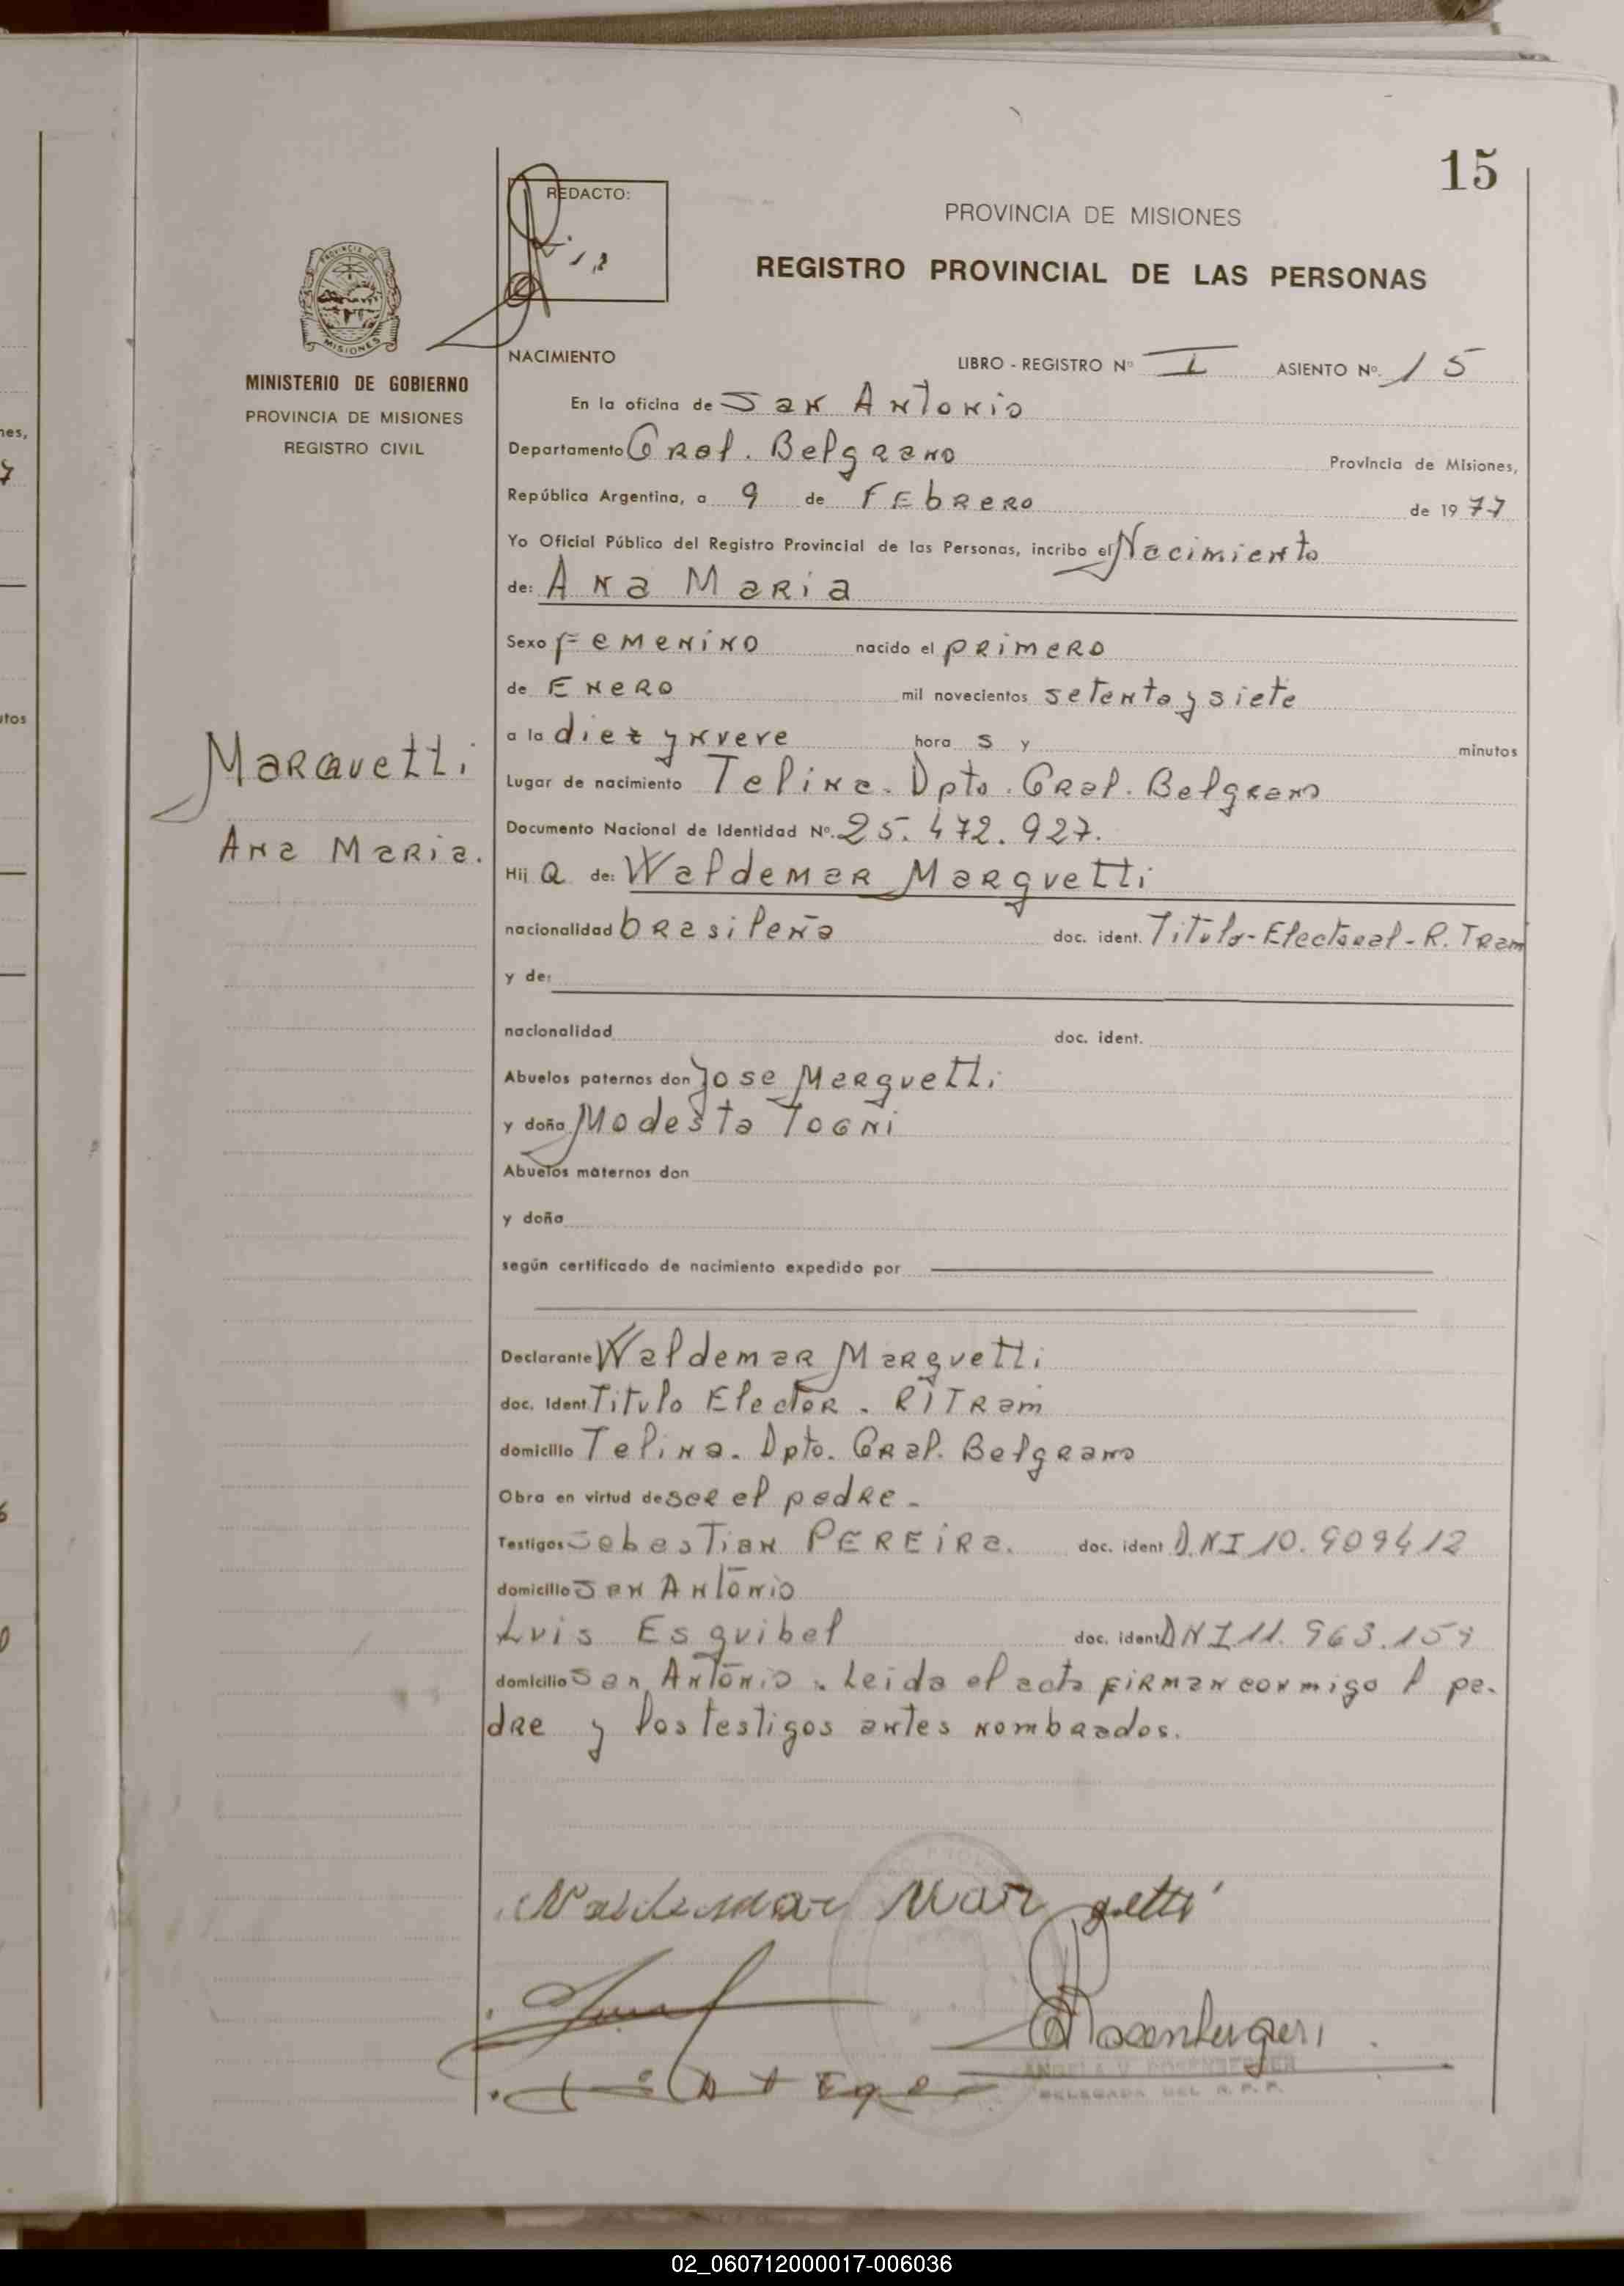 15
REDACTO:
PROVINCIA DE MISIONES
REGISTRO PROVINCIAL DE LAS PERSONAS
PROVINCIA DE
MISIONES
MINISTERIO DE GOBIERNO
PROVINCIA DE MISIONES
REGISTRO CIVIL
NACIMIENTO LIBRO - REGISTRO Nº I ASIENTO Nº. 15
En la oficina de San Antonio
Departamento Gral. Belgrano Provincia de Misiones,
República Argentina, a 9 de FEbrero de 1977
Yo Oficial Público del Registro Provincial de las Personas, incribo el Nacimiento
de: Ana Maria
Sexo Femenino nacido el primero
de Enero mil novecientos setenta y siete
a la diez y nueve hora s y minutos
Lugar de nacimiento Telina. Dpto. Gral. Belgrano
Documento Nacional de Identidad Nº. 25.472.927.
Hij a de: Waldemar Marquetti
nacionalidad brasileña doc. ident. Titulo-Electoral-R. Tram
y de:
nacionalidad doc. ident.
Abuelos paternos don Jose Marquetti
y doña Modesta Togni
Abuelos maternos don
y doña
según certificado de nacimiento expedido por
Declarante Waldemar Marquetti
doc. Ident Titulo Elector. RITRam
domicilio Telina. Dpto. Gral. Belgrano
Obra en virtud de ser el padre.
Testigos Sebastian PEREIRA. doc. ident D.NI 10.909412
domicilio San Antonio
Luis Esquibel doc. ident DNI 11.963.15
domicilio San Antonio. Leida el acta firman conmigo l pa-
dre y los testigos antes nombrados.
Marquetti
Ana Maria.
Waldemar Marquetti
Rosenberger
ANGELA V. ROSENBERGER
DELEGADA DEL R. P. P.
nes,
7
utos
02_060712000017-006036